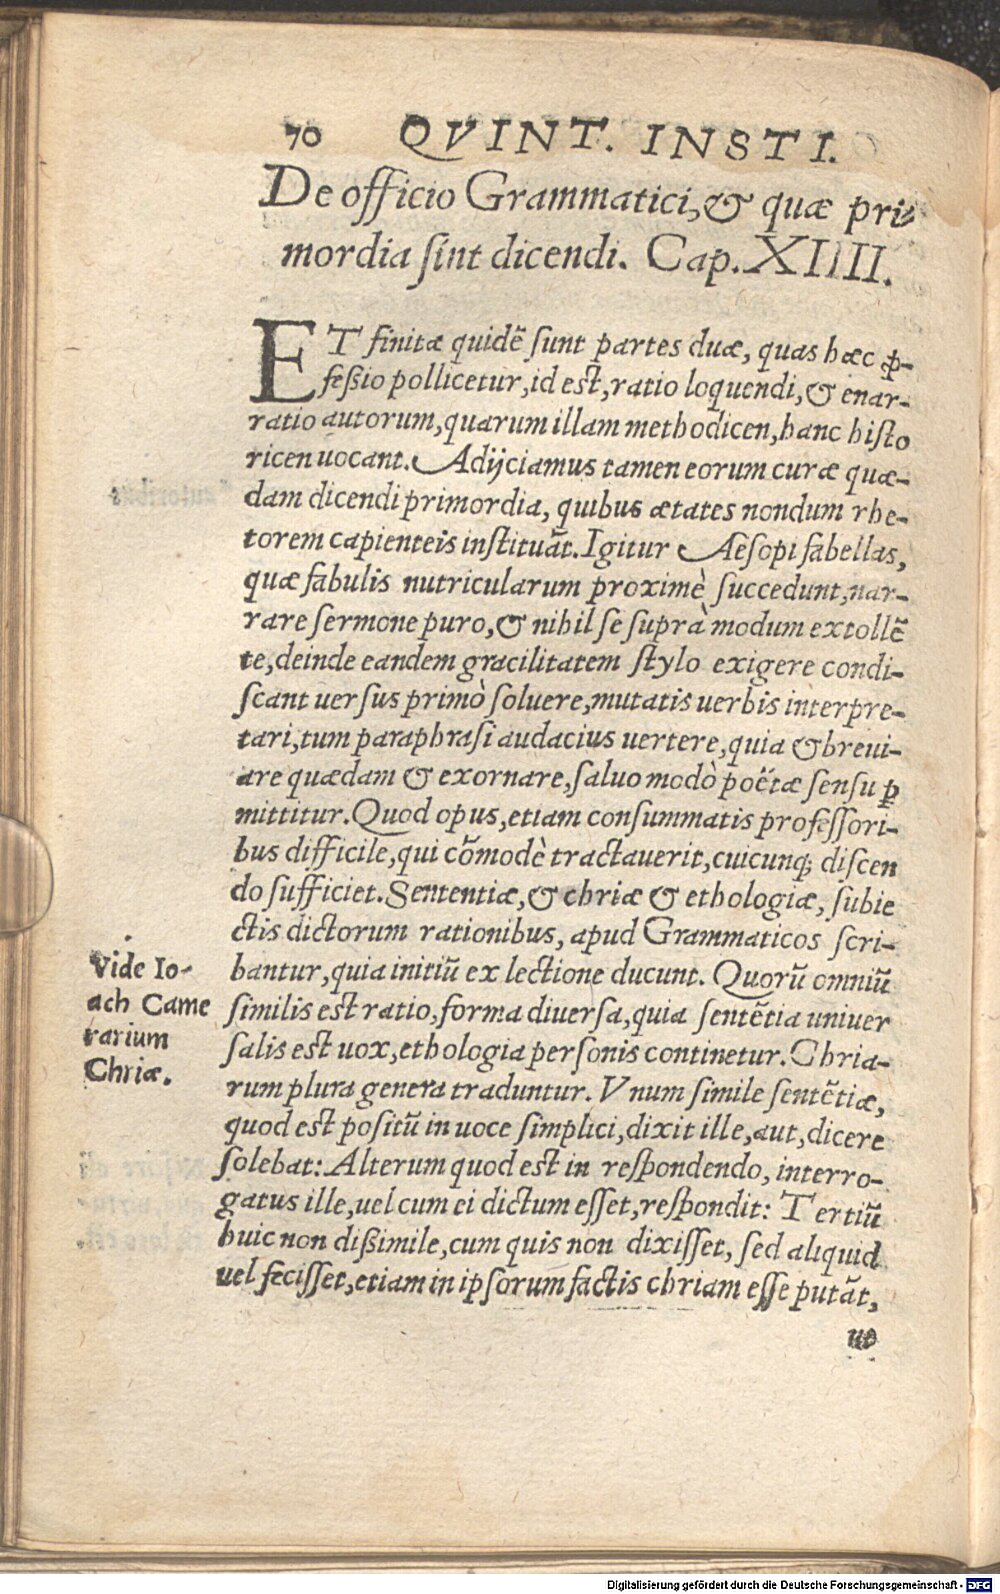 70 QVINT. INSTI.
De officio Grammatici, & quæ pri-
mordia sint dicendi. Cap. XIIII.
ET finitæ quidē sunt partes duæ, quas hæc ꝓ-
feßio pollicetur, id est, ratio loquendi, & enar-
ratio autorum, quarum illam methodicen, hanc histo
ricen uocant. Adijciamus tamen eorum curæ quæ-
dam dicendi primordia, quibus ætates nondum rhe-
torem capienteis instituāt. Igitur Aesopi fabellas,
quæ fabulis nutricularum proximè succedunt, nar-
rare sermone puro, & nihil se suprà modum extollē
te, deinde eandem gracilitatem stylo exigere condi-
scant uersus primò soluere, mutatis uerbis interpre-
tari, tum paraphrasi audacius uertere, quia & breui-
are quædam & exornare, saluo modò poëtæ sensu ꝑ
mittitur. Quod opus, etiam consummatis professori-
bus difficile, qui cōmodè tractauerit, cuicunqꝫ discen
do sufficiet. Sententiæ, & chriæ & ethologiæ, subie
ctis dictorum rationibus, apud Grammaticos scri-
bantur, quia initiū ex lectione ducunt. Quorū omniū
similis est ratio, forma diuersa, quia sentētia uniuer
salis est uox, ethologia personis continetur. Chria-
rum plura genera traduntur. Vnum simile sentētiæ,
quod est positū in uoce simplici, dixit ille, aut, dicere
solebat: Alterum quod est in respondendo, interro-
gatus ille, uel cum ei dictum esset, respondit: Tertiū
huic non dißimile, cum quis non dixisset, sed aliquid
uel fecisset, etiam in ipsorum factis chriam esse putāt,
Vide Io-
ach Came
rarium
Chriæ.
Digitalisierung gefördert durch die Deutsche Forschungsgemeinschaft - DFG